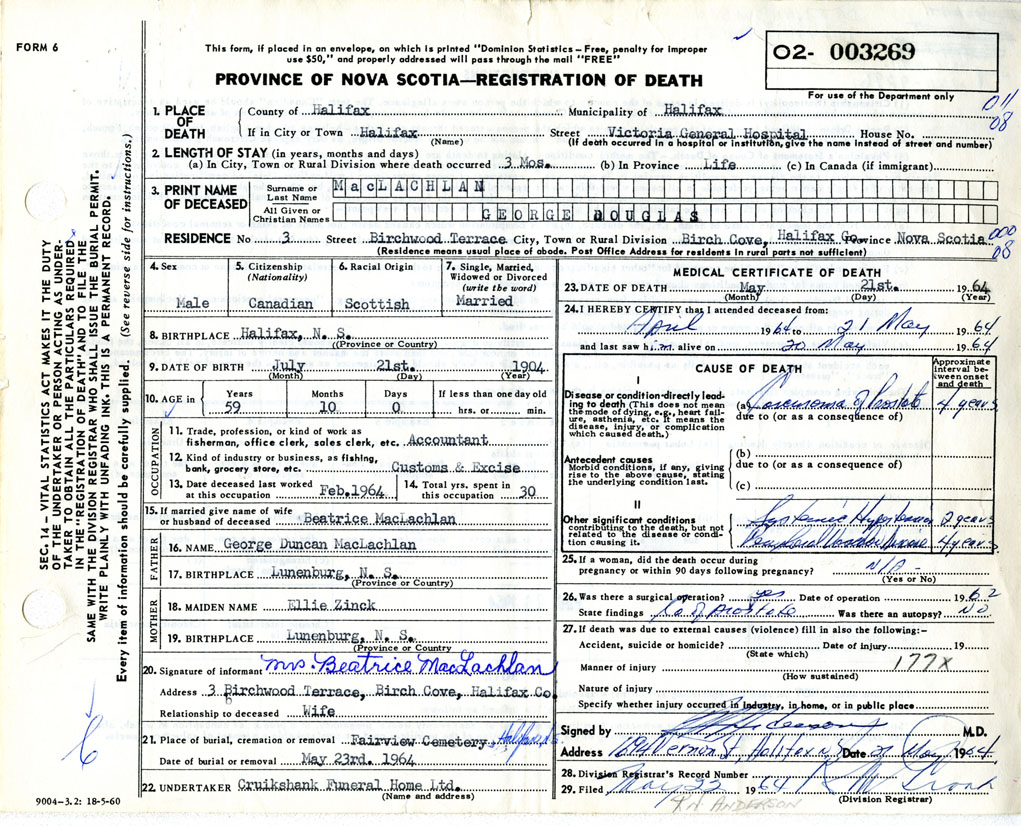 FORM 6
This form, if placed in an envelope, on which is printed "Dominion Statistics – Free, penalty for improper
use $50," and properly addressed will pass through the mail "FREE"
PROVINCE OF NOVA SCOTIA—REGISTRATION OF DEATH
02- 003269
For use of the Department only
011
08
1. PLACE OF DEATH
County of Halifax Municipality of Halifax
If in City or Town Halifax Street Victoria General Hospital House No.
(Name) (If death occurred in a hospital or institution, give the name instead of street and number)
2. LENGTH OF STAY (in years, months and days)
(a) In City, Town or Rural Division where death occurred 3 Mos. (b) In Province Life (c) In Canada (if immigrant)
3. PRINT NAME OF DECEASED
Surname or Last Name MacLACHLAN
All Given or Christian Names GEORGE DOUGLAS
RESIDENCE No 3 Street Birchwood Terrace City, Town or Rural Division Birch Cove, Halifax Co. Province Nova Scotia
000
08
(Residence means usual place of abode. Post Office Address for residents in rural parts not sufficient)
4. Sex Male
5. Citizenship (Nationality) Canadian
6. Racial Origin Scottish
7. Single, Married, Widowed or Divorced (write the word) Married
8. BIRTHPLACE Halifax, N. S.
(Province or Country)
9. DATE OF BIRTH July 21st. 1904
(Month) (Day) (Year)
10. AGE in Years 59 Months 10 Days 0 If less than one day old hrs. or min.
OCCUPATION
11. Trade, profession, or kind of work as
fisherman, office clerk, sales clerk, etc. Accountant
12. Kind of industry or business, as fishing,
bank, grocery store, etc. Customs & Excise
13. Date deceased last worked at this occupation Feb.1964
14. Total yrs. spent in this occupation 30
15. If married give name of wife
or husband of deceased Beatrice MacLachlan
FATHER
16. NAME George Duncan MacLachlan
17. BIRTHPLACE Lunenburg, N. S.
(Province or Country)
MOTHER
18. MAIDEN NAME Ellie Zinck
19. BIRTHPLACE Lunenburg, N. S.
(Province or Country
20. Signature of informant Mrs. Beatrice MacLachlan
Address 3 Birchwood Terrace, Birch Cove, Halifax Co.
Relationship to deceased Wife
21. Place of burial, cremation or removal Fairview Cemetery, Halifax, N.S.
Date of burial or removal May 23rd. 1964
22. UNDERTAKER Cruikshank Funeral Home Ltd.
(Name and address)
9004-3.2: 18-5-60
MEDICAL CERTIFICATE OF DEATH
23. DATE OF DEATH May 21st. 1964
(Month) (Day) (Year)
24. I HEREBY CERTIFY that I attended deceased from:
April 1964 to 21 May 1964
and last saw him alive on 20 May 1964
CAUSE OF DEATH
Approximate interval between onset and death
I
Disease or condition directly leading to death (This does not mean the mode of dying, e.g., heart failure, asthenia, etc. It means the disease, injury, or complication which caused death.)
(a) Carcinoma of Prostate 4 years
due to (or as a consequence of)
Antecedent causes
Morbid conditions, if any, giving rise to the above cause, stating the underlying condition last.
(b)
due to (or as a consequence of)
(c)
II
Other significant conditions contributing to the death, but not related to the disease or condition causing it.
Systemic Hypertension 2 years
Peripheral Vascular Disease 4 years
25. If a woman, did the death occur during
pregnancy or within 90 days following pregnancy? N/A
(Yes or No)
26. Was there a surgical operation? yes Date of operation 1962
State findings Ca of prostate Was there an autopsy? NO
27. If death was due to external causes (violence) fill in also the following:–
Accident, suicide or homicide? Date of injury 19
(State which)
177X
Manner of injury
(How sustained)
Nature of injury
Specify whether injury occurred in industry, in home, or in public place
Signed by Anderson M.D.
Address Vernon St, Halifax N.S. Date 21 May 1964
28. Division Registrar's Record Number
29. Filed May 22 1964
(Division Registrar)
ANDERSON
SEC. 14 – VITAL STATISTICS ACT MAKES IT THE DUTY
OF THE UNDERTAKER OR PERSON ACTING AS UNDER-
TAKER TO OBTAIN ALL THE PARTICULARS REQUIRED
IN THE "REGISTRATION OF DEATH" AND TO FILE THE
SAME WITH THE DIVISION REGISTRAR WHO SHALL ISSUE THE BURIAL PERMIT.
WRITE PLAINLY WITH UNFADING INK. THIS IS A PERMANENT RECORD.
Every item of information should be carefully supplied. (See reverse side for instructions.)